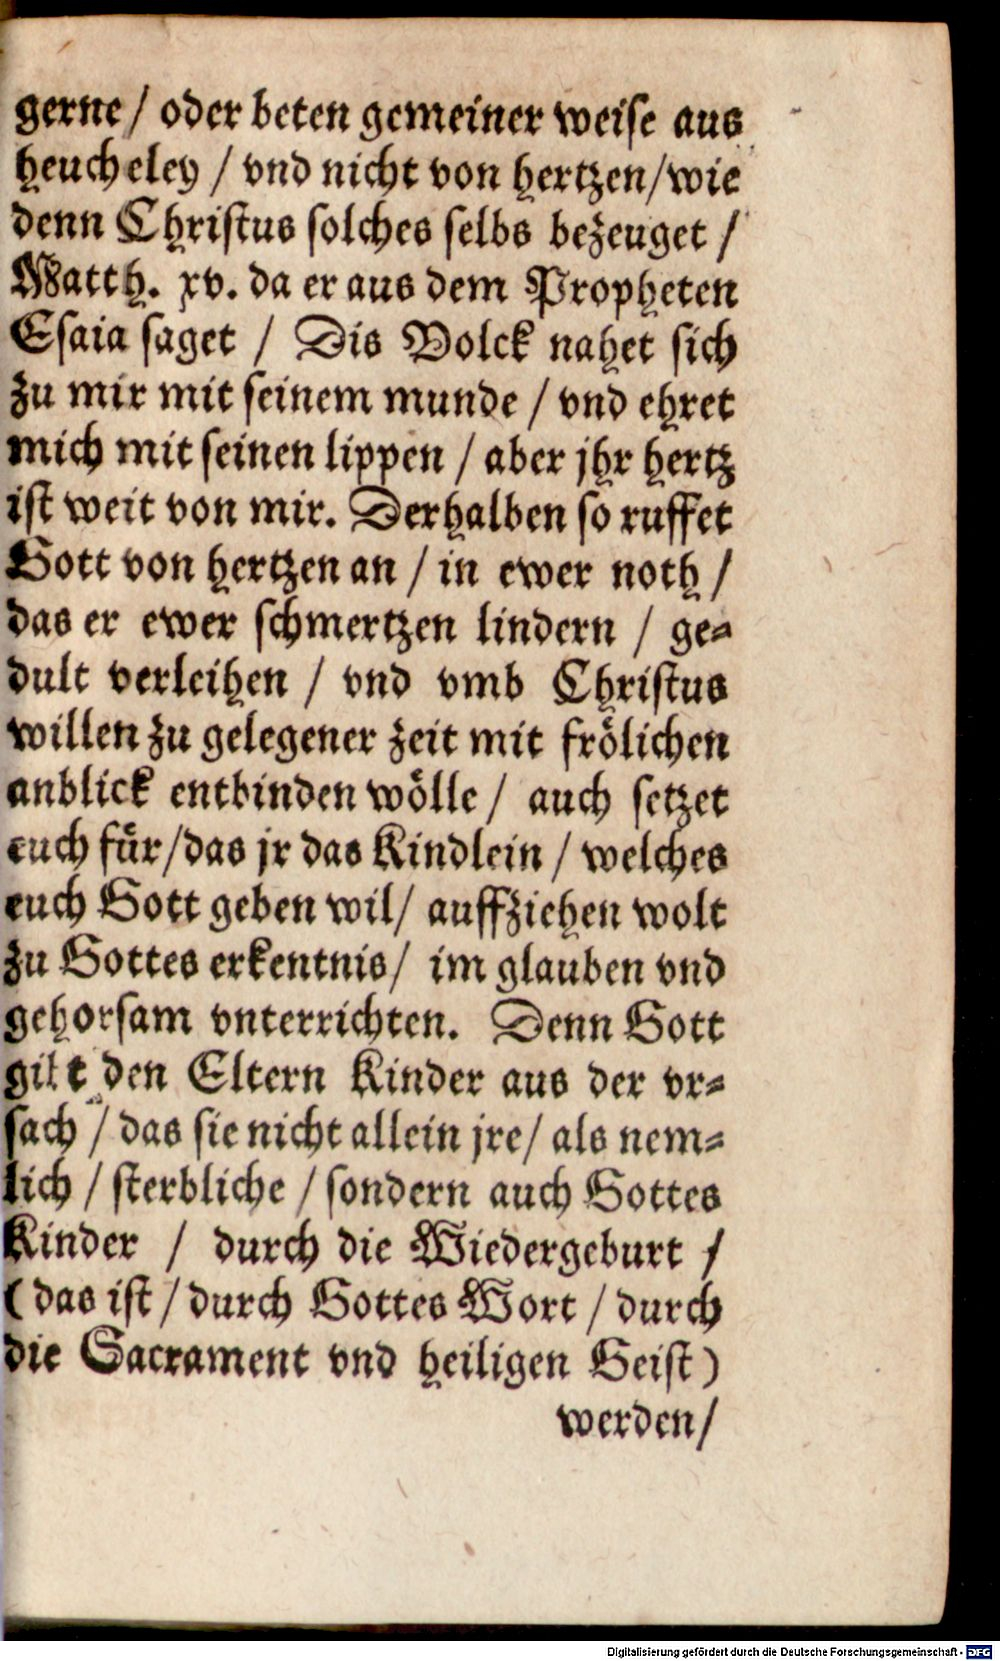 gerne / oder beten gemeiner weise aus
heucheley / vnd nicht von hertzen / wie
denn Christus solches selbs bezeuget /
Matth. xv. da er aus dem Propheten
Esaia saget / Dis Volck nahet sich
zu mir mit seinem munde / vnd ehret
mich mit seinen lippen / aber jhr hertz
ist weit von mir. Derhalben so ruffet
Gott von hertzen an / in ewer noth /
das er ewer schmertzen lindern / ge-
dult verleihen / vnd vmb Christus
willen zu gelegener zeit mit frölichen
anblick entbinden wölle / auch setzet
euch für / das jr das Kindlein / welches
euch Gott geben wil / auffziehen wolt
zu Gottes erkentnis / im glauben vnd
gehorsam vnterrichten. Denn Gott
gibt den Eltern Kinder aus der vr-
sach / das sie nicht allein jre / als nem-
lich / sterbliche / sondern auch Gottes
Kinder / durch die Wiedergeburt /
(das ist / durch Gottes Wort / durch
die Sacrament vnd heiligen Geist)
werden /
Digitalisierung gefördert durch die Deutsche Forschungsgemeinschaft - DFG